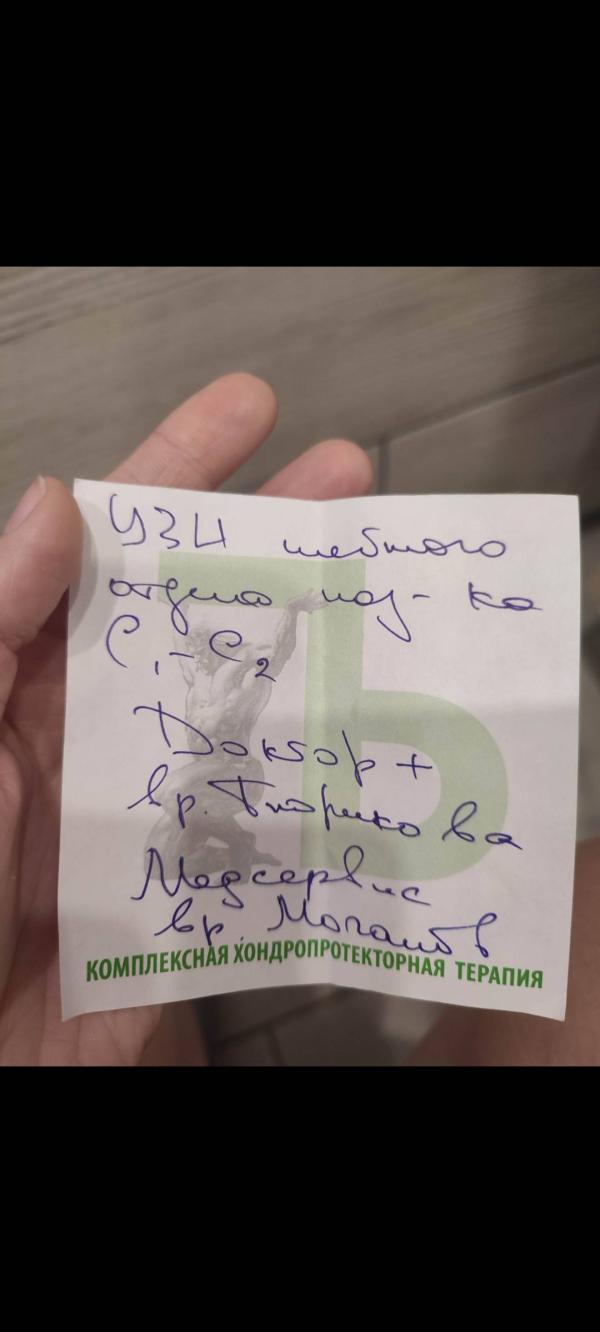 УЗИ шейного
отдела поз-ка
C₁-C₂
Доктор +
вр.
Медсервис
вр.
КОМПЛЕКСНАЯ ХОНДРОПРОТЕКТОРНАЯ ТЕРАПИЯ